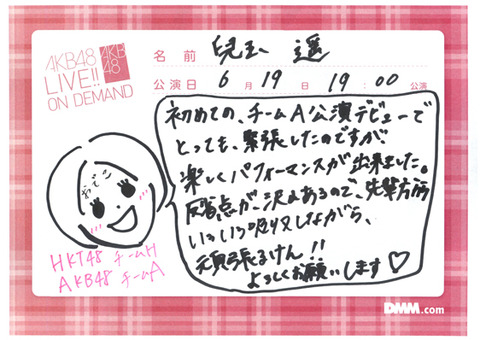 AKB48
LIVE!!
ON DEMAND
AKB
48
名前 兒玉 遥
公演日 6月19日 19:00 公演
初めての、チームA公演デビューで
とっても、緊張したのですが
楽しくパフォーマンスが出来ました。
反省点が、沢山あるので、先輩方から
いっぱい吸収しながら、
頑張るけん!!
よろしくお願いします♡
おでこ
HKT48 チームH
AKB48 チームA
DMM.com